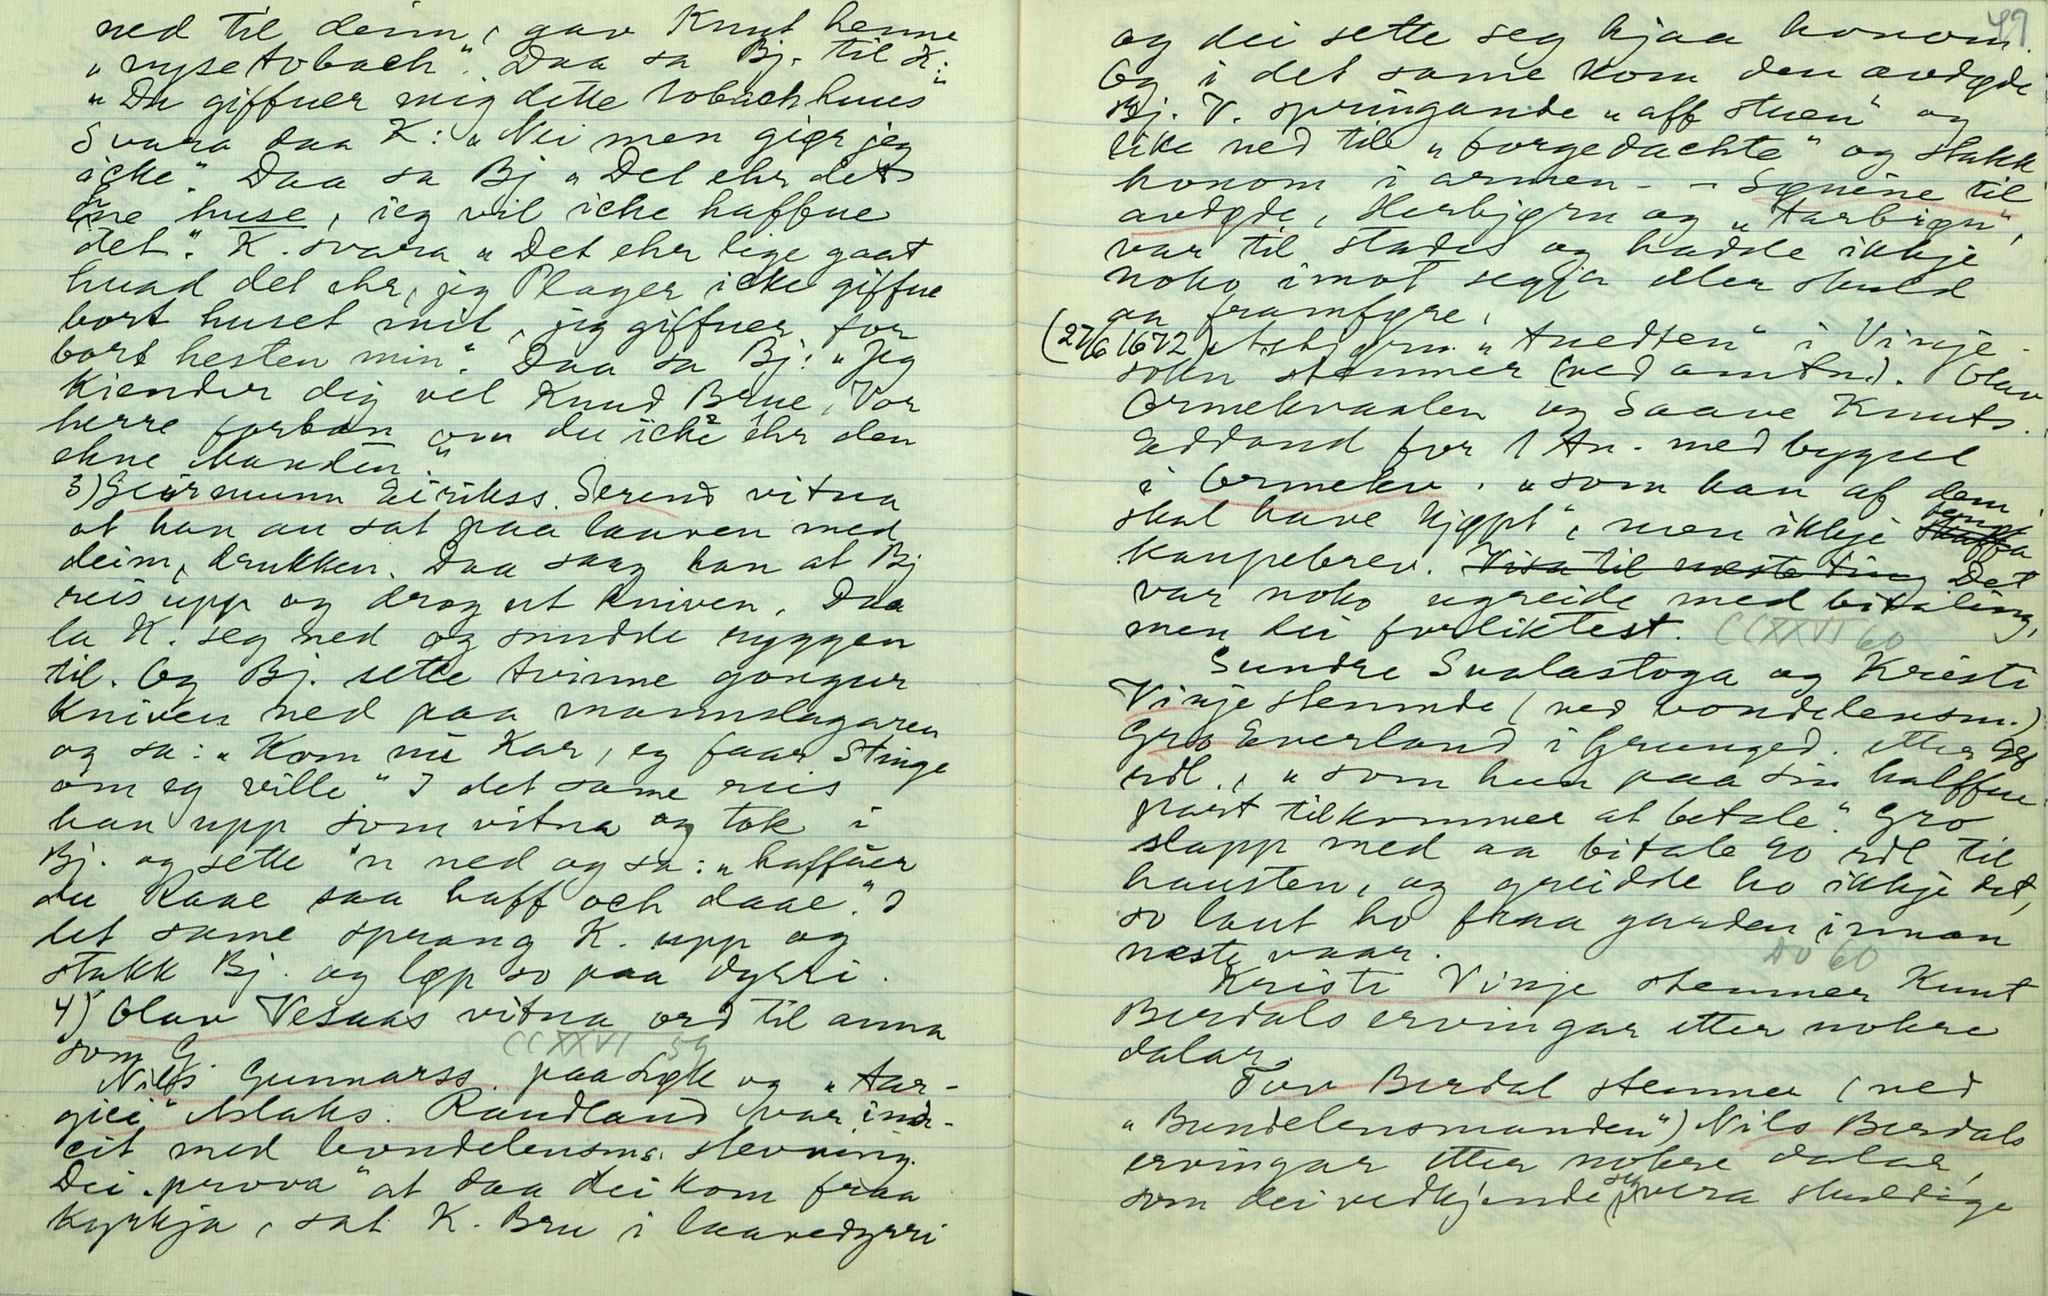 ned til deim, gav Knut henne
"nysetobach". Daa sa Bj. til K:
"Du giffuer mig dette tobachhuus"
Svara daa K: "Nei men giør jeg
icke". Daa sa Bj "Det ehr det
ene huse, ieg vil icke haffue
det." K. svara "Det ehr lige gaat
huad det ehr, jeg Plager icke giffue
bort huset mit, jeg giffuer for
bort hesten min". Daa sa Bj: "Jeg
Kiender dig vel Knud Brue, Vor
herre forban om du icke ehr den
ehne Manden."
3) Geirmunn Eirikss. Serend vitna
at han au sat paa laaven med
deim, drukken. Daa saag han at Bj
reis upp og drog ut kniven. Daa
la K. seg ned og snudde ryggen
til. Og Bj. sette tvinne gongur
kniven ned paa mannslagaren
og sa: "Kom nu Kar, eg faar Stinge
om eg ville" I det same reis
han upp som vitna og tok i
Bj. og sette 'n ned og sa: "haffuer
du Raae saa haff och daae." I
det same sprang K. upp og
stakk Bj. og løp so paa dyrri.
4) Olav Vesaas vitna ord til anna
som G.
CCXXVI 59
Nils Gunnarss. paa Løk og "Tar-
giei" Aslaks. Raudland var inn-
eit med bondelensms. stevning.
Dei "prova" at daa dei kom fraa
kyrkja, sat K. Bru i laavedyrri
49
og dei sette seg hjaa honom.
Og i det same kom den avdøde
Bj. V. springande "aff stuen" og
like ned til "forgedachte" og stakk
honom i armen - - Sønine til
avdøde, Herbjørn og "Aarbiøn",
var til stades og hadde ikkje
noko imot segja eller skuld
aa framføre.
(27/6 1672) Asbjørn "Anedten" i Vinje-
sokn stemner (ved amtn.). Olav
Ormekvaalen og Saave Knuts.
Eddand for 1 An. med bygsel
i Ormekv. "som han af dem
skal have kjøpt", men ikkje fenge
kaupebrev. Visa til næste ting Det
var noko ugreide med bitaling,
men dei forliktest. CCXXVI 60
Sundre Svalastoga og Kristi
Vinje stemnde (ved bondelensm.)
Gro Everland i Grunged. etter 98
rdl., "som hun paa sin halffue
part tilkommer at betale." Gro
slapp med aa bitale 90 rdl til
hausten, og greidde ho ikkje det,
so laut ho fraa garden innan
næste vaar. Do 60
Kristi Vinje stemner Knut
Berdals ervingar etter nokre
dalar.
Tov Berdal stemner (ved
"Bundelensmanden") Nils Berdals
ervingar etter nokre dalar,
som dei vedkjende seg vera skuldige